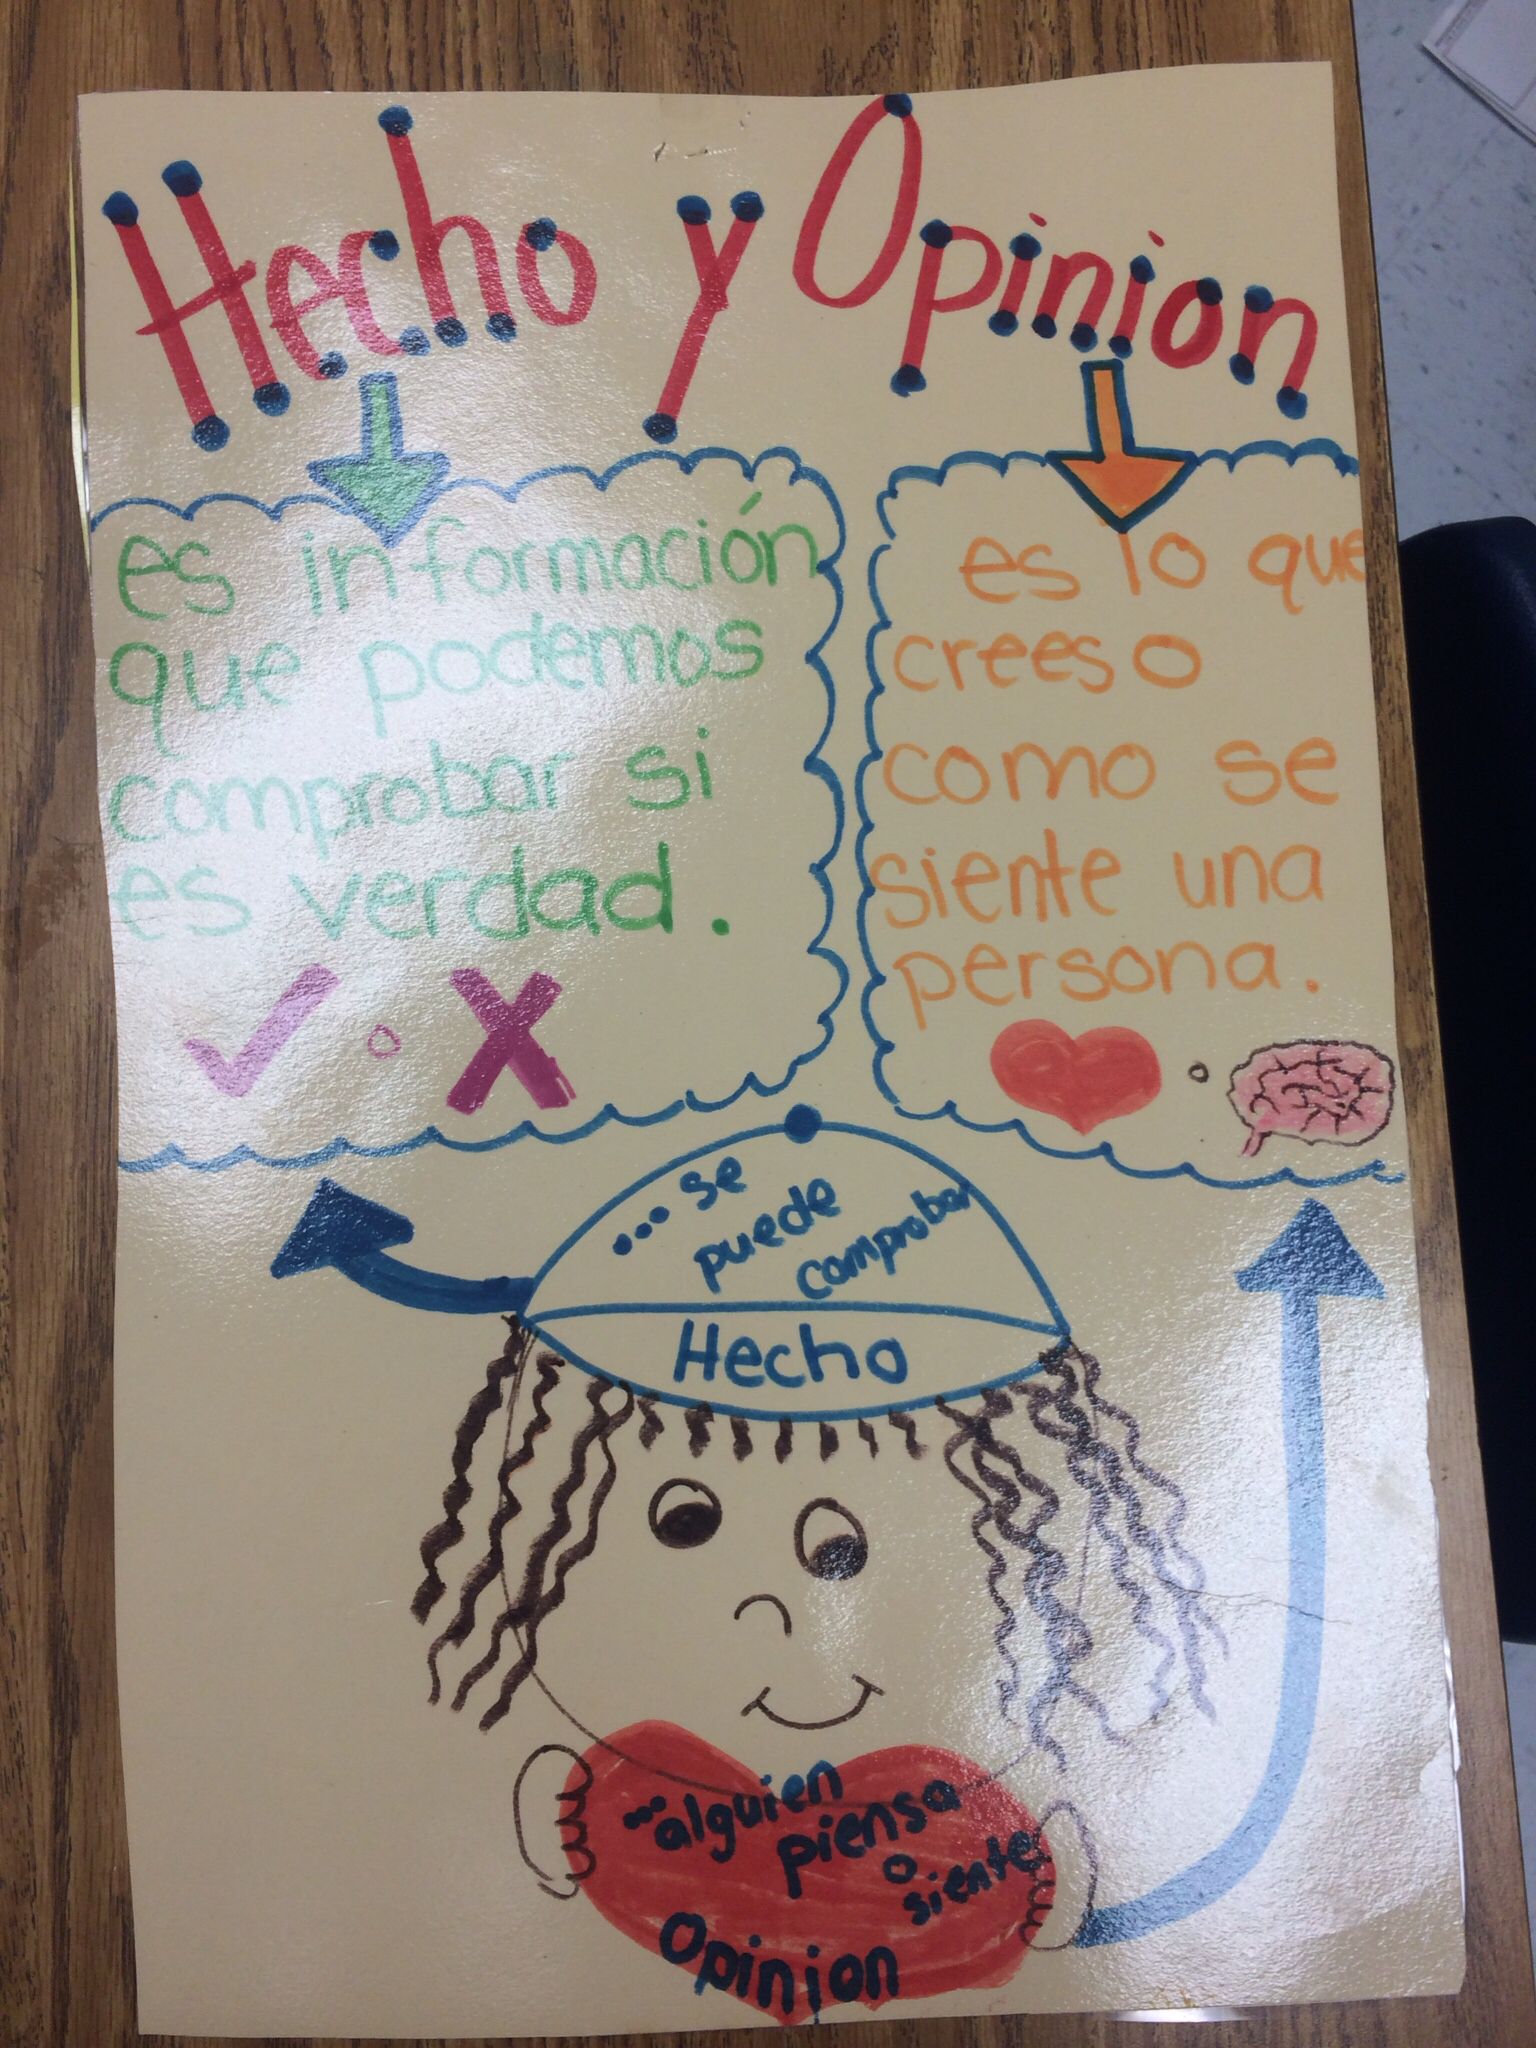 Hecho y Opinion
es información
que podemos
comprobar si
es verdad.
o
es lo que
crees o
como se
siente una
persona.
o
...se
puede
comprobar
Hecho
...alguien
piensa
o
siente
Opinion